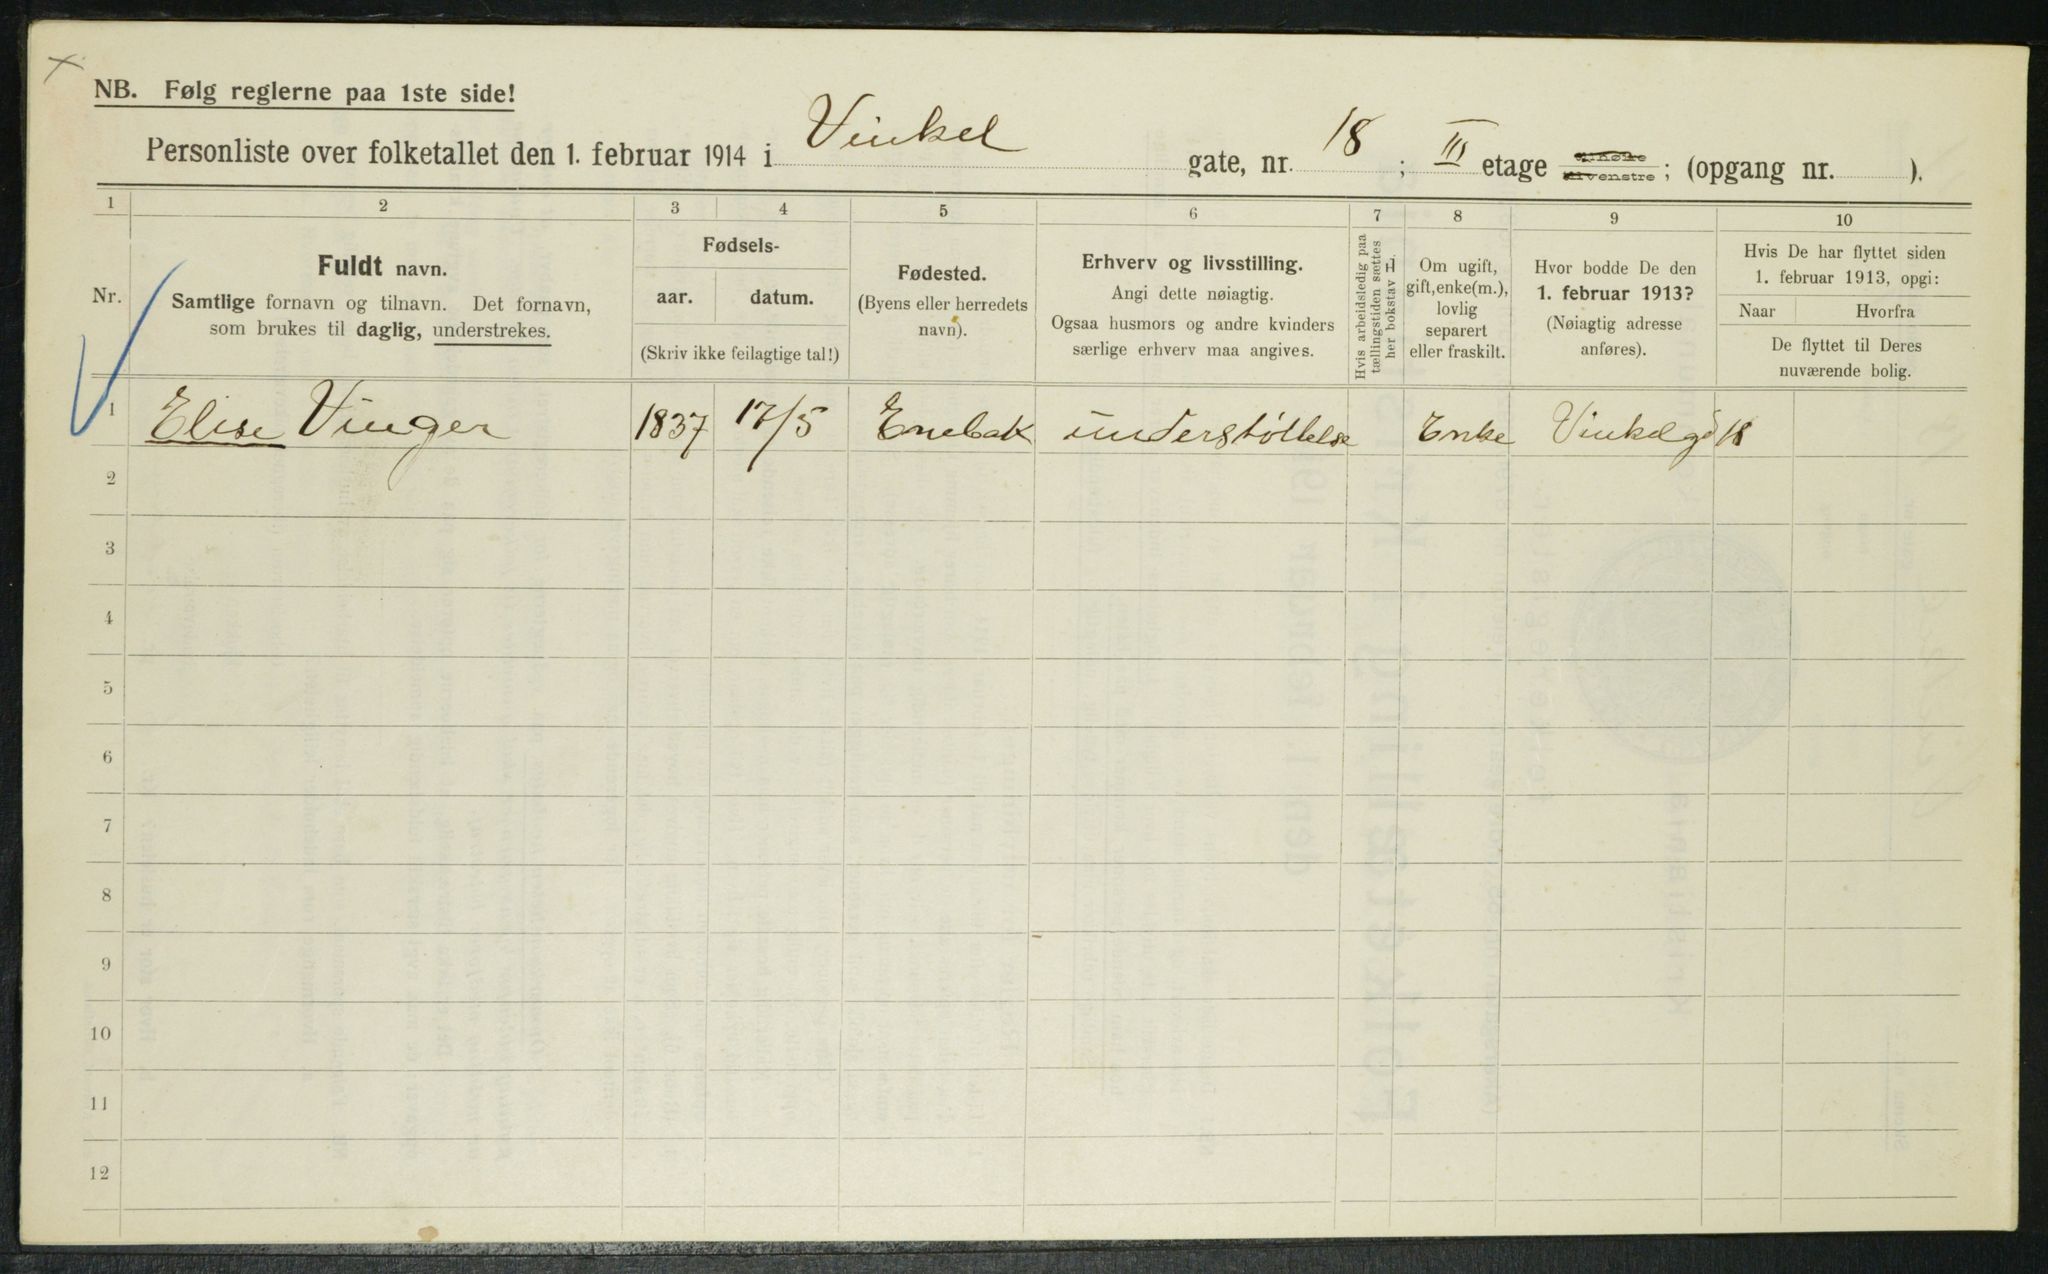 NB. Følg reglerne paa 1ste side!
Personliste over folketallet den 1. februar 1914 i Vinkel gate, nr. 18; III etage tilhøire tilvenstre; (opgang nr. ).
1 2 3 4 5 6 7 8 9 10
Nr.
Fuldt navn.
Samtlige fornavn og tilnavn. Det fornavn,
som brukes til daglig, understrekes.
Fødsels-
aar. datum.
(Skriv ikke feilagtige tal!)
Fødested.
(Byens eller herredets
navn).
Erhverv og livsstilling.
Angi dette nøiagtig.
Ogsaa husmors og andre kvinders
særlige erhverv maa angives.
Hvis arbeidsledig paa
tællingstiden sættes
her bokstav L
Om ugift,
gift, enke(m.),
lovlig
separert
eller fraskilt.
Hvor bodde De den
1. februar 1913?
(Nøiagtig adresse
anføres).
Hvis De har flyttet siden
1. februar 1913, opgi:
Naar Hvorfra
De flyttet til Deres
nuværende bolig.
1 Elise Vinger 1837 17/5 Enebak understøttelse Enke Vinkelg 18
2
3
4
5
6
7
8
9
10
11
12